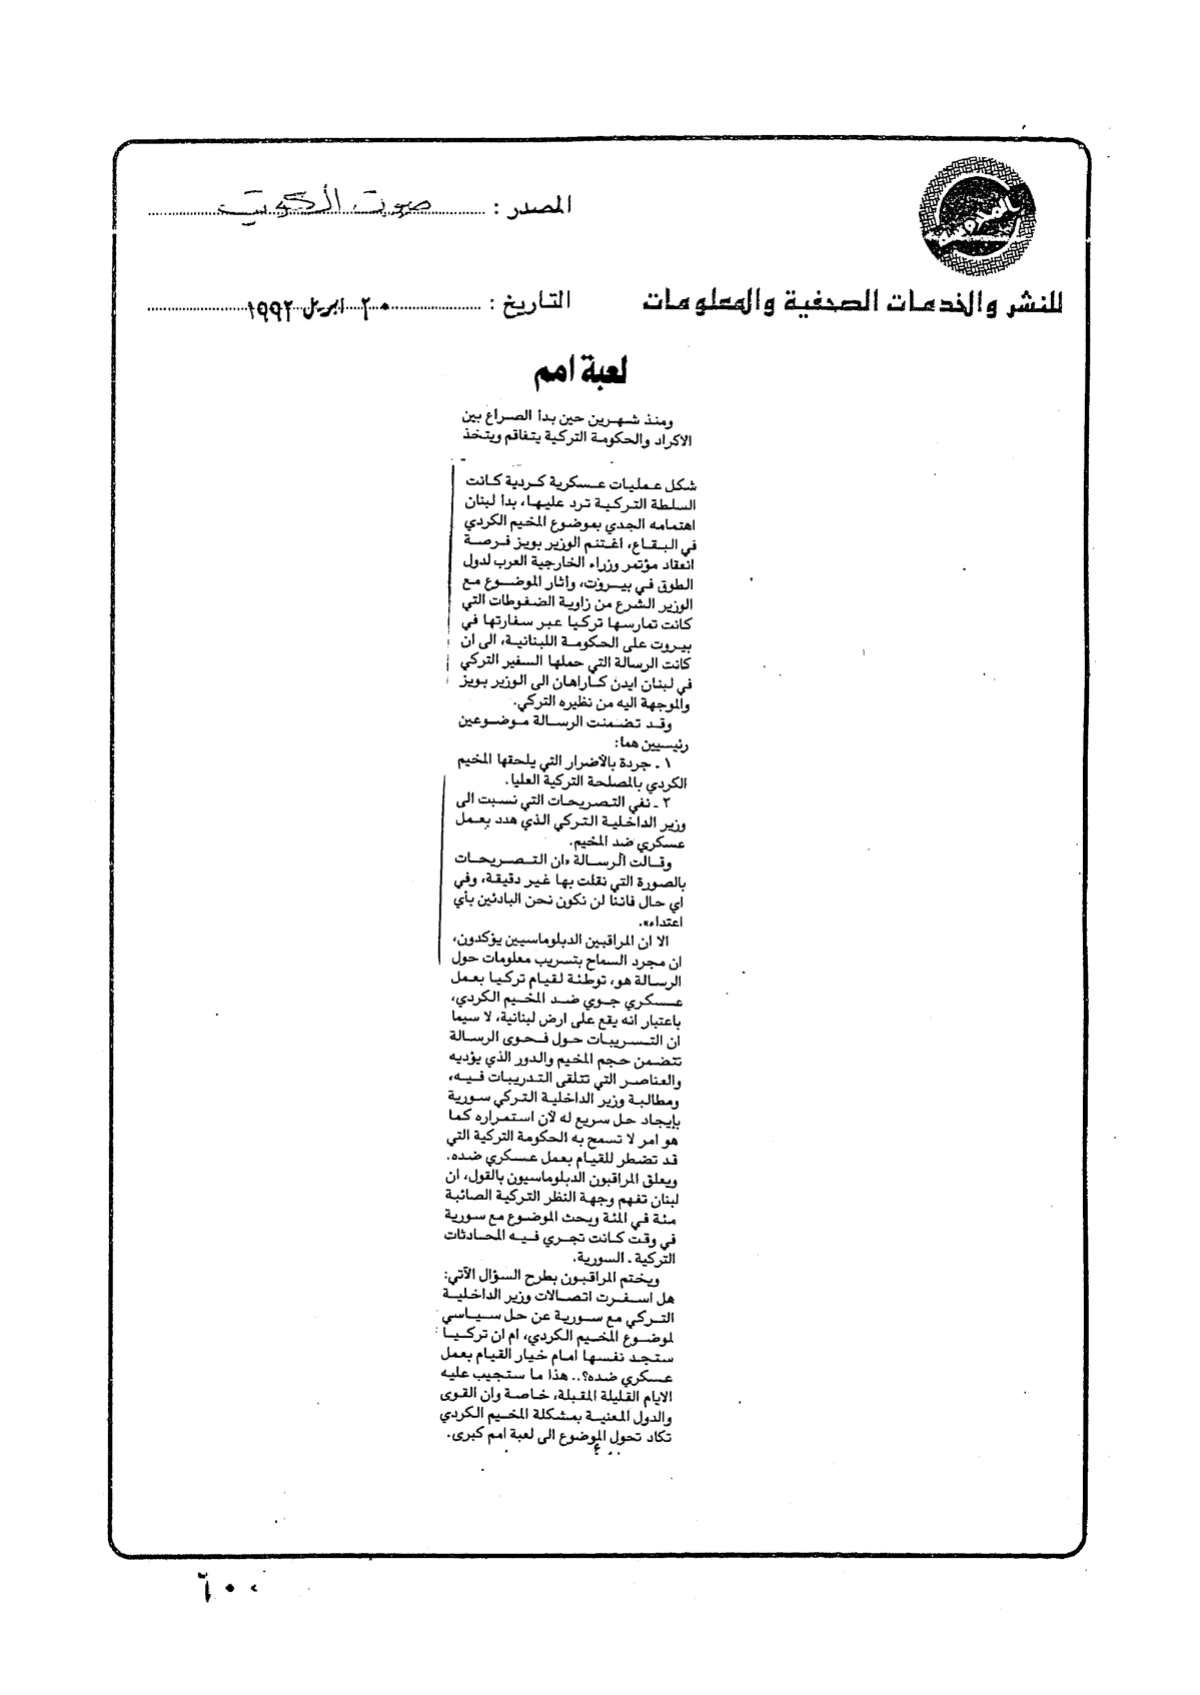 المصدر : صوت الكويت
للنشر والخدمات الصحفية والمعلومات
التاريخ : ٢٠ ابريل ١٩٩٢
لعبة امم
ومنذ شهرين حين بدأ الصراع بين
الاكراد والحكومة التركية يتفاقم ويتخذ
شكل عمليات عسكرية كردية كانت
السلطة التركية ترد عليها، بدأ لبنان
اهتمامه الجدي بموضوع المخيم الكردي
في البقاع، اغتنم الوزير بويز فرصة
انعقاد مؤتمر وزراء الخارجية العرب لدول
الطوق في بيروت، وأثار الموضوع مع
الوزير الشرع من زاوية الضغوطات التي
كانت تمارسها تركيا عبر سفارتها في
بيروت على الحكومة اللبنانية، الى ان
كانت الرسالة التي حملها السفير التركي
في لبنان ايدن كاراهان الى الوزير بويز
والموجهة اليه من نظيره التركي.
وقد تضمنت الرسالة موضوعين
رئيسيين هما:
١ ـ جردة بالأضرار التي يلحقها المخيم
الكردي بالمصلحة التركية العليا.
٢ ـ نفي التصريحات التي نسبت الى
وزير الداخلية التركي الذي هدد بعمل
عسكري ضد المخيم.
وقالت الرسالة «ان التصريحات
بالصورة التي نقلت بها غير دقيقة، وفي
اي حال فاننا لن نكون نحن البادئين بأي
اعتداء».
الا ان المراقبين الدبلوماسيين يؤكدون،
ان مجرد السماح بتسريب معلومات حول
الرسالة هو، توطئة لقيام تركيا بعمل
عسكري جوي ضد المخيم الكردي،
باعتبار انه يقع على ارض لبنانية، لا سيما
ان التسريبات حول فحوى الرسالة
تتضمن حجم المخيم والدور الذي يؤديه
والعناصر التي تتلقى التدريبات فيه،
ومطالبة وزير الداخلية التركي سورية
بإيجاد حل سريع له لأن استمراره كما
هو امر لا تسمح به الحكومة التركية التي
قد تضطر للقيام بعمل عسكري ضده.
ويعلق المراقبون الدبلوماسيون بالقول، ان
لبنان تفهم وجهة النظر التركية الصائبة
مئة في المئة وبحث الموضوع مع سورية
في وقت كانت تجري فيه المحادثات
التركية ـ السورية.
ويختم المراقبون بطرح السؤال الآتي:
هل اسفرت اتصالات وزير الداخلية
التركي مع سورية عن حل سياسي
لموضوع المخيم الكردي، ام ان تركيا
ستجد نفسها امام خيار القيام بعمل
عسكري ضده؟.. هذا ما ستجيب عليه
الايام القليلة المقبلة، خاصة وان القوى
والدول المعنية بمشكلة المخيم الكردي
تكاد تحول الموضوع الى لعبة امم كبرى.